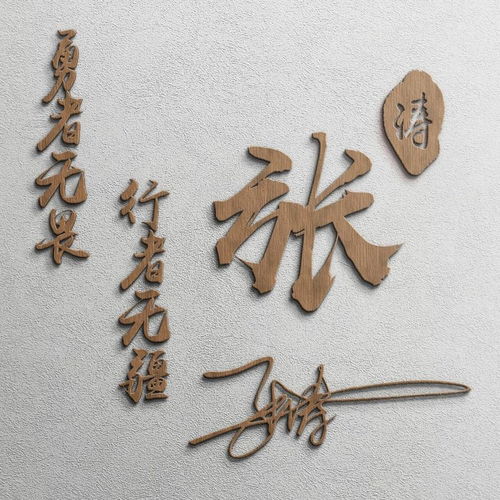 勇者无畏
行者无疆
张
涛
张涛